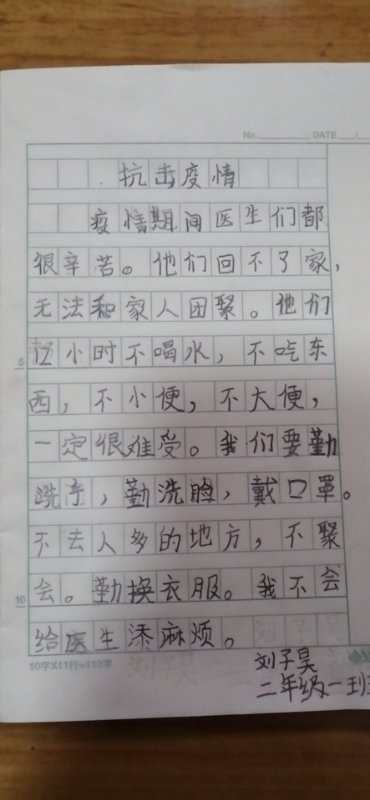 No. DATE / 
抗击疫情
疫情期间医生们都
很辛苦。他们回不了家,
无法和家人团聚。他们
小时不喝水,不吃东
5
西,不小便,不大便,
一定很难受。我们要勤
洗手,勤洗脸,戴口罩。
不去人多的地方,不聚
会。勤换衣服。我不会
10
给医生添麻烦。
刘子昊
二年级一班